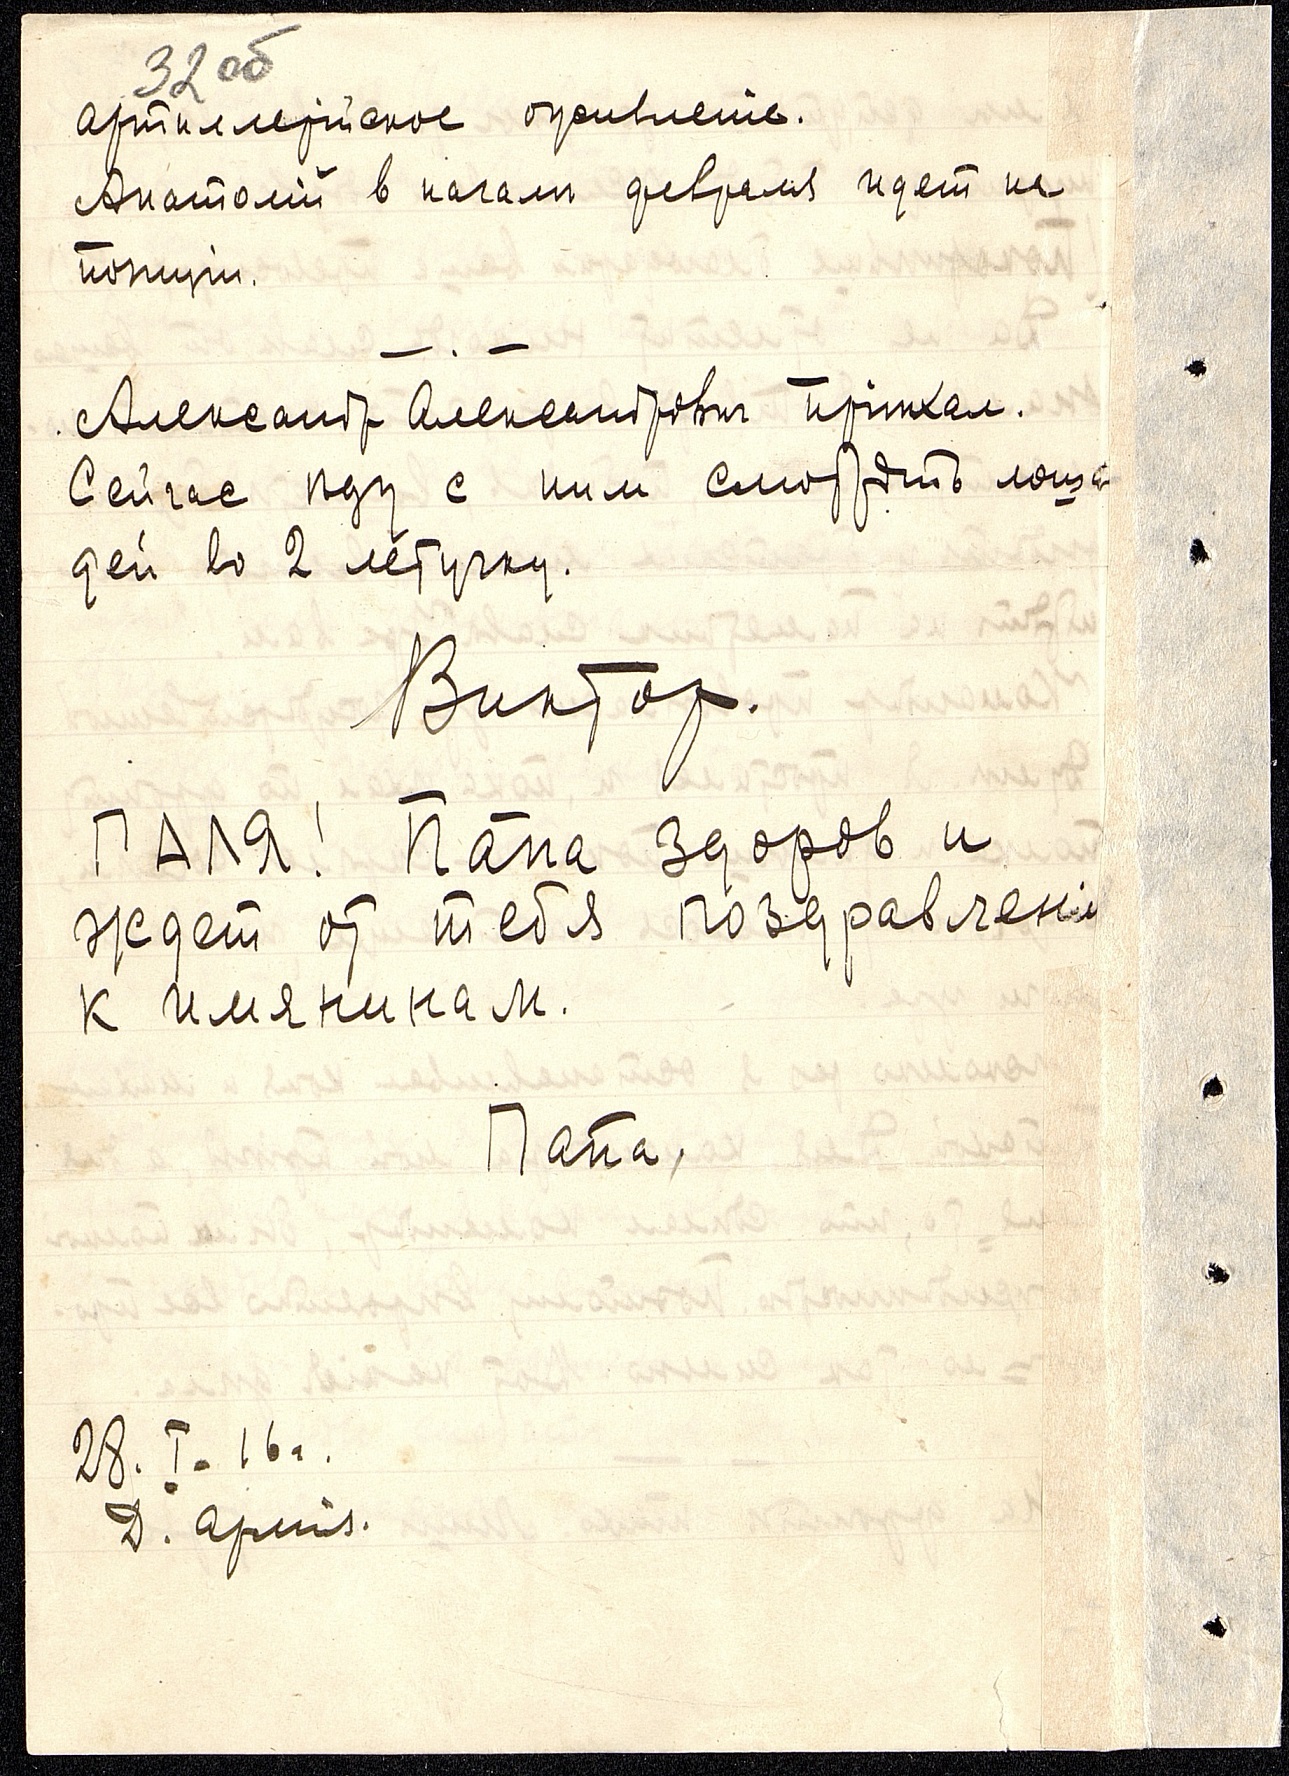 32 об
артиллерійское оживленіе.
Анатолій в началѣ февраля идет на
позиціи.
Александр Александрович пріѣхал.
Сейчас иду с ним смотрѣть лоша
дей во 2 летучку.
Виктор.
ПАЛЯ! Папа здоров и
ждет от тебя поздравленій
к имянинам.
Папа,
28. I. 16 г.
Д. армія.